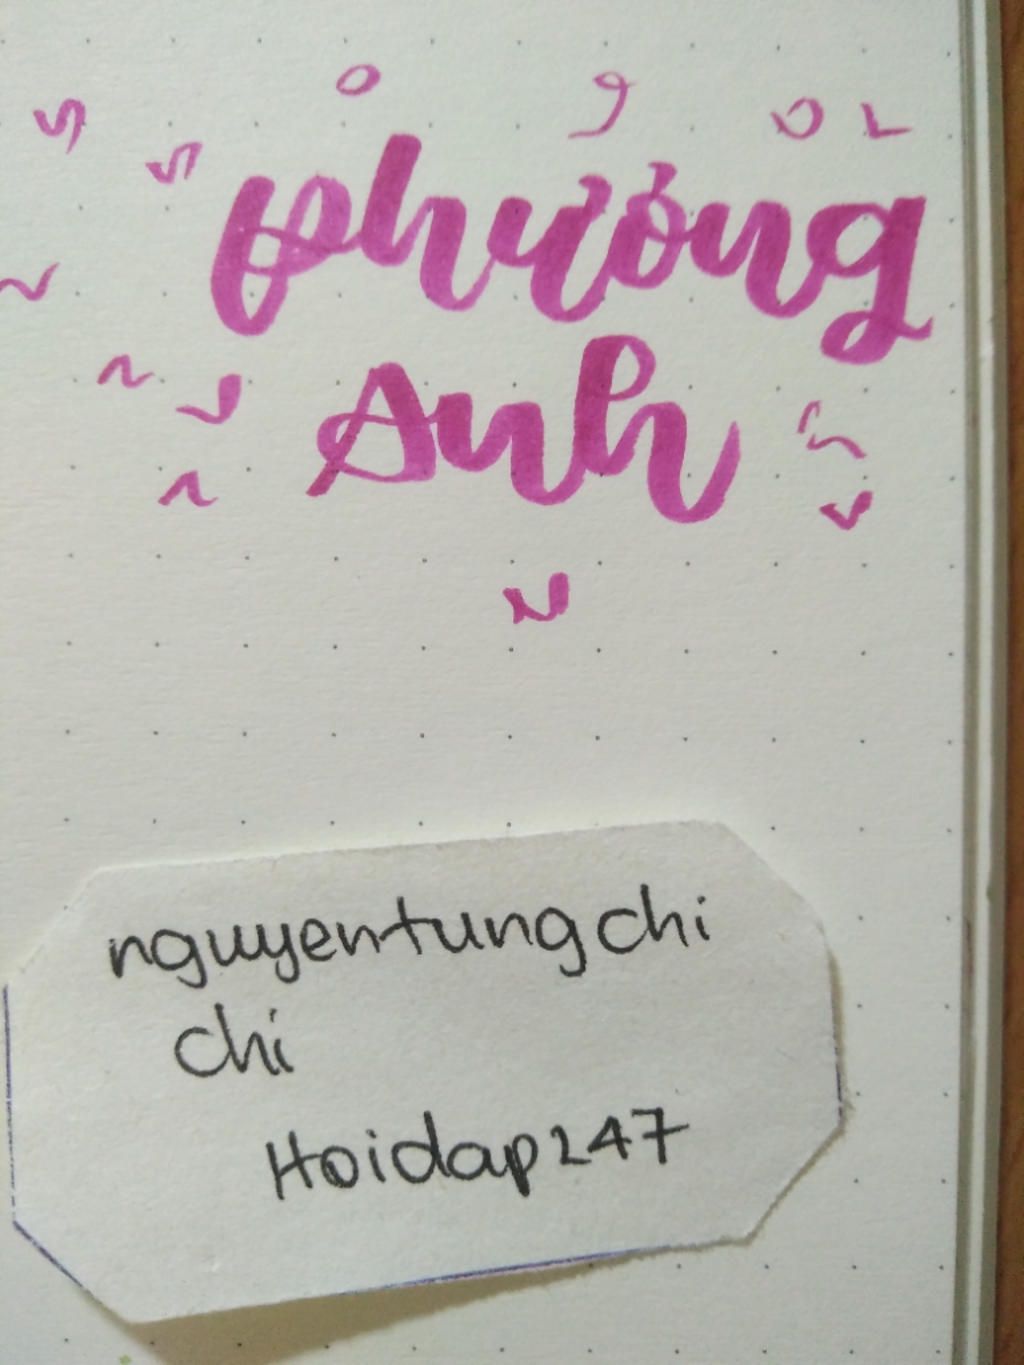 Phương
Anh
nguyentungchi
chi
Hoidap247